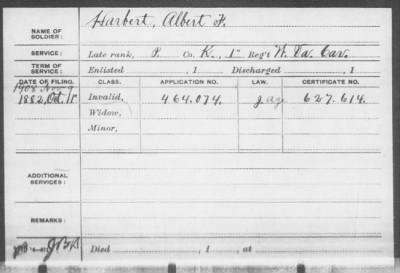 NAME OF SOLDIER: Harbert, Albert F.
SERVICE: Late rank, P. Co. K., 1" Reg't W. Va. Cav.
TERM OF SERVICE: Enlisted , 1 Discharged , 1
DATE OF FILING. CLASS. APPLICATION NO. LAW. CERTIFICATE NO.
1908 Nov 9
1882, Oct. Invalid, 464.074. 627.614.
Widow,
Minor,
ADDITIONAL SERVICES:
REMARKS:
Died , 1 , at